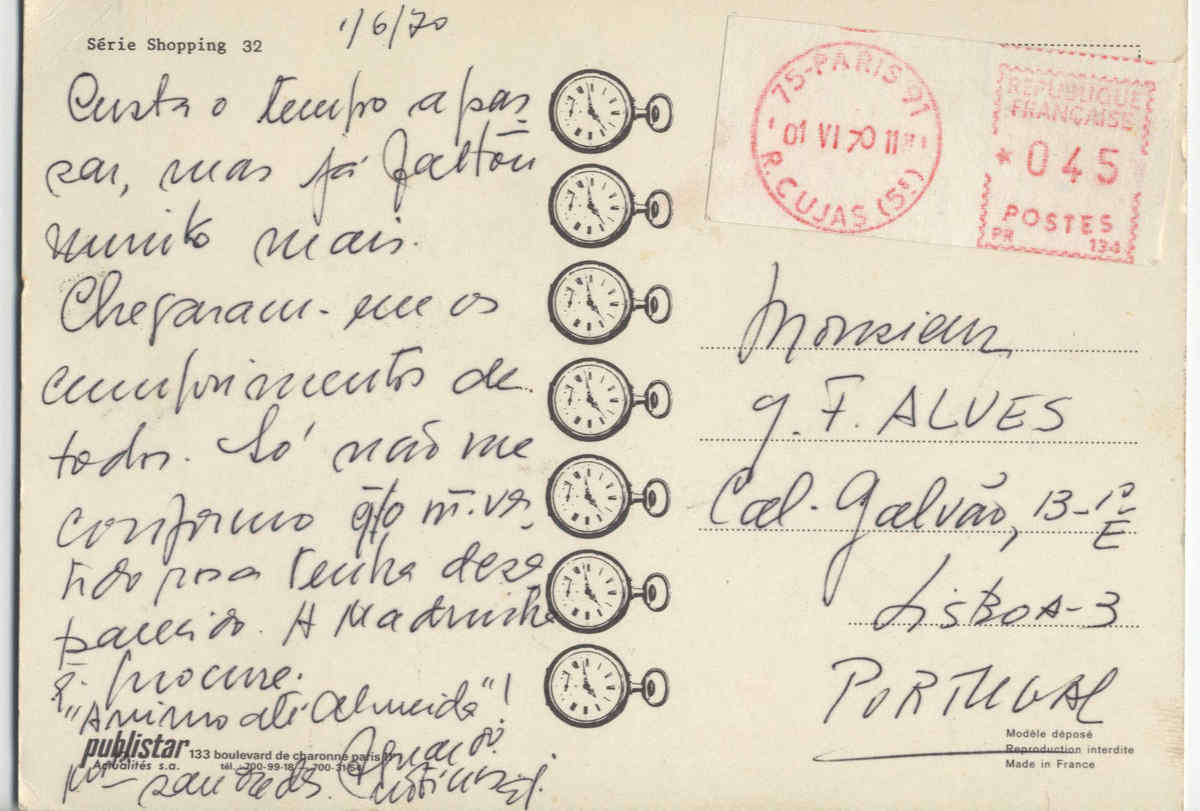 Série Shopping 32
1/6/70
Custa o tempo a pas
sar, mas já faltou
muito mais.
Chegaram-me os
cumprimentos de
todos. Só não me
conformo q/o m. ves
tido rosa tenha desa
parecido. A Madrinha
q. procure.
"Animo até Almeida"!
saudades.
publistar
Actualités s.a.
133 boulevard de charonne paris 11
tél. 700-99-18 700-31-54
75-PARIS 91
01 VI 70 11H
R. CUJAS (5e)
REPUBLIQUE
FRANÇAISE
* 045
POSTES
PR 134
Monsieur
G. F. ALVES
Cal. Galvão, 13-1º
E
LISBOA-3
PORTUGAL
Modèle déposé
Reproduction interdite
Made in France